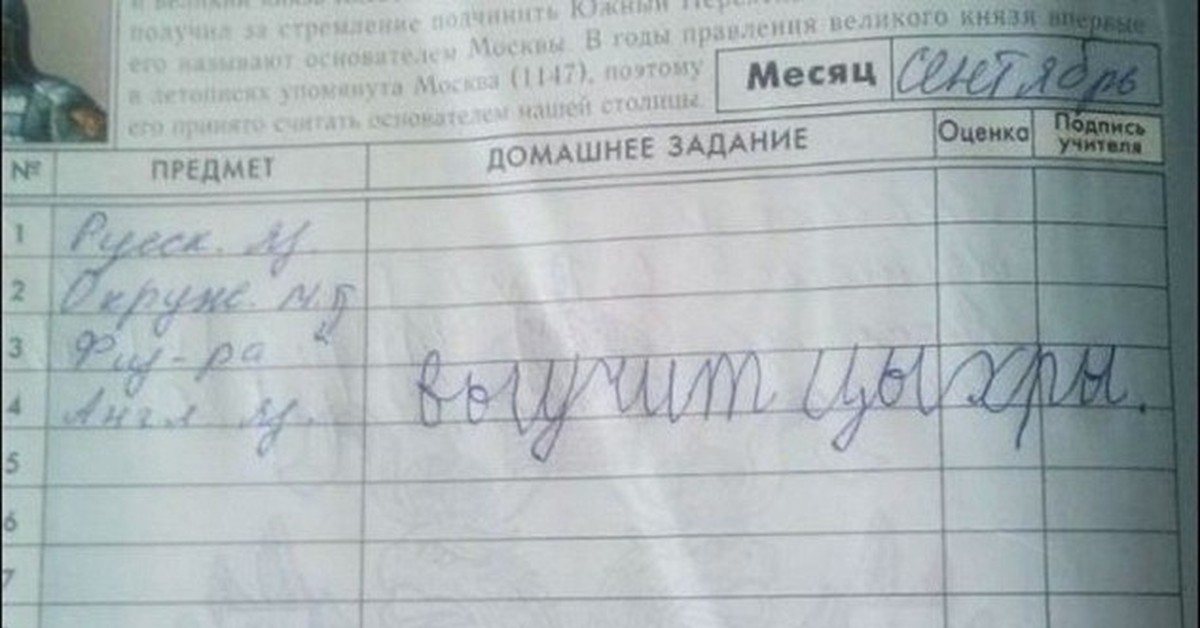 получил за стремление подчинить Южный
его называют основателем Москвы. В годы правления великого князя впервые
в летописях упомянута Москва (1147), поэтому
его принято считать основателем нашей столицы.
Месяц Сентябрь
№ ПРЕДМЕТ ДОМАШНЕЕ ЗАДАНИЕ Оценка Подпись учителя
1 Русск. яз.
2 Окруж. м.
3 Физ-ра
4 Англ яз. выучит цыхры.
5
6
7